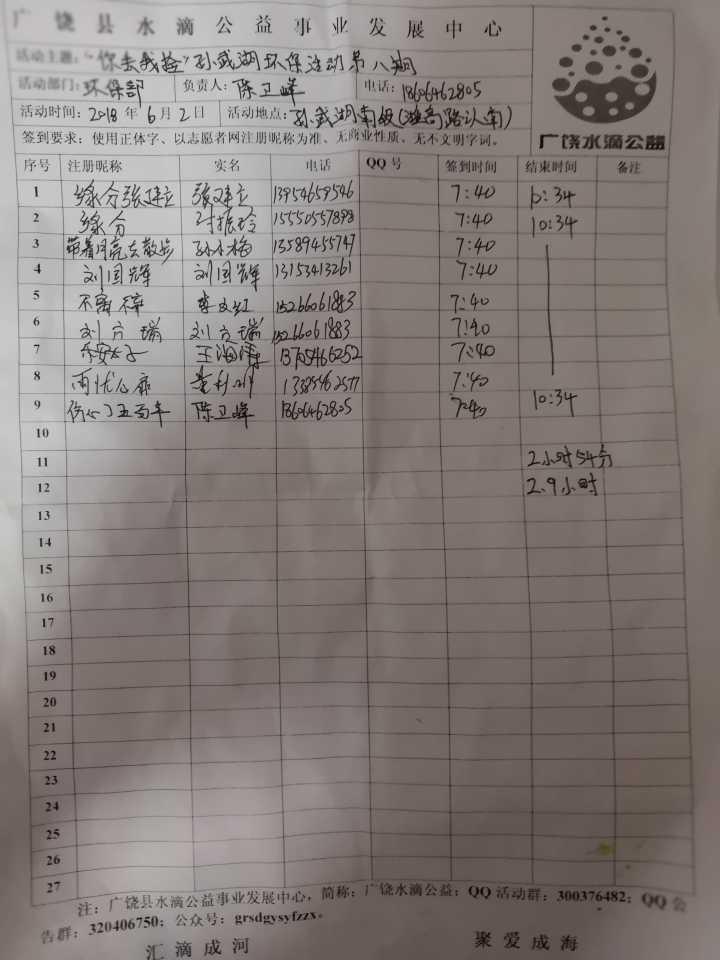 广饶县水滴公益事业发展中心
活动主题:"你丢我捡"孙武湖环保活动第八期
活动部门:环保部 负责人:陈卫峰 电话:13606462805
活动时间:2018年6月2日 活动地点:孙武湖南坝(潍高路以南)
签到要求:使用正体字、以志愿者网注册昵称为准、无商业性质、无不文明字词。
广饶水滴公益
序号 注册昵称 实名 电话 QQ号 签到时间 结束时间 备注
1 缘分张建立 张建立 13954659546 7:40 10:34
2 缘分 振玲 15550557898 7:40 10:34
3 带着月亮去散步 孙小梅 13589455747 7:40
4 刘国辉 刘国辉 13153413261 7:40
5 不离不弃 李文红 15266061883 7:40
6 刘方瑞 刘方瑞 15266061883 7:40
7 王海 13705466252 7:40
8 7:40
9 伤心了五百年 陈卫峰 13606462805 7:40 10:34
10
11 2小时54分
12 2.9小时
13
14
15
16
17
18
19
20
21
22
23
24
25
26
27
注:广饶县水滴公益事业发展中心,简称:广饶水滴公益;QQ活动群:300376482;QQ公
告群:320406750;公众号:grsdgysyfzzx。
汇滴成河 聚爱成海